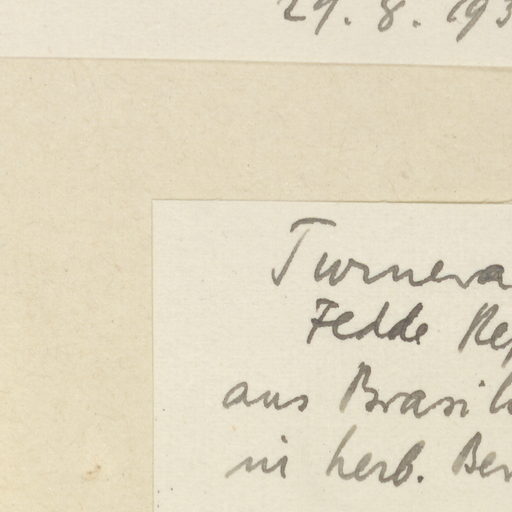 29. 8. 193
Turnera
Fedde Rep
aus Brasil
in herb. Ber